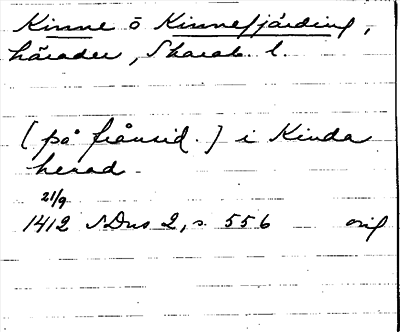 Kinne o Kinnefjärding,
härader, Skarab. l.
[på frånsid.] i Kinda
herad
21/9
1412 SDns 2, s. 556 orig